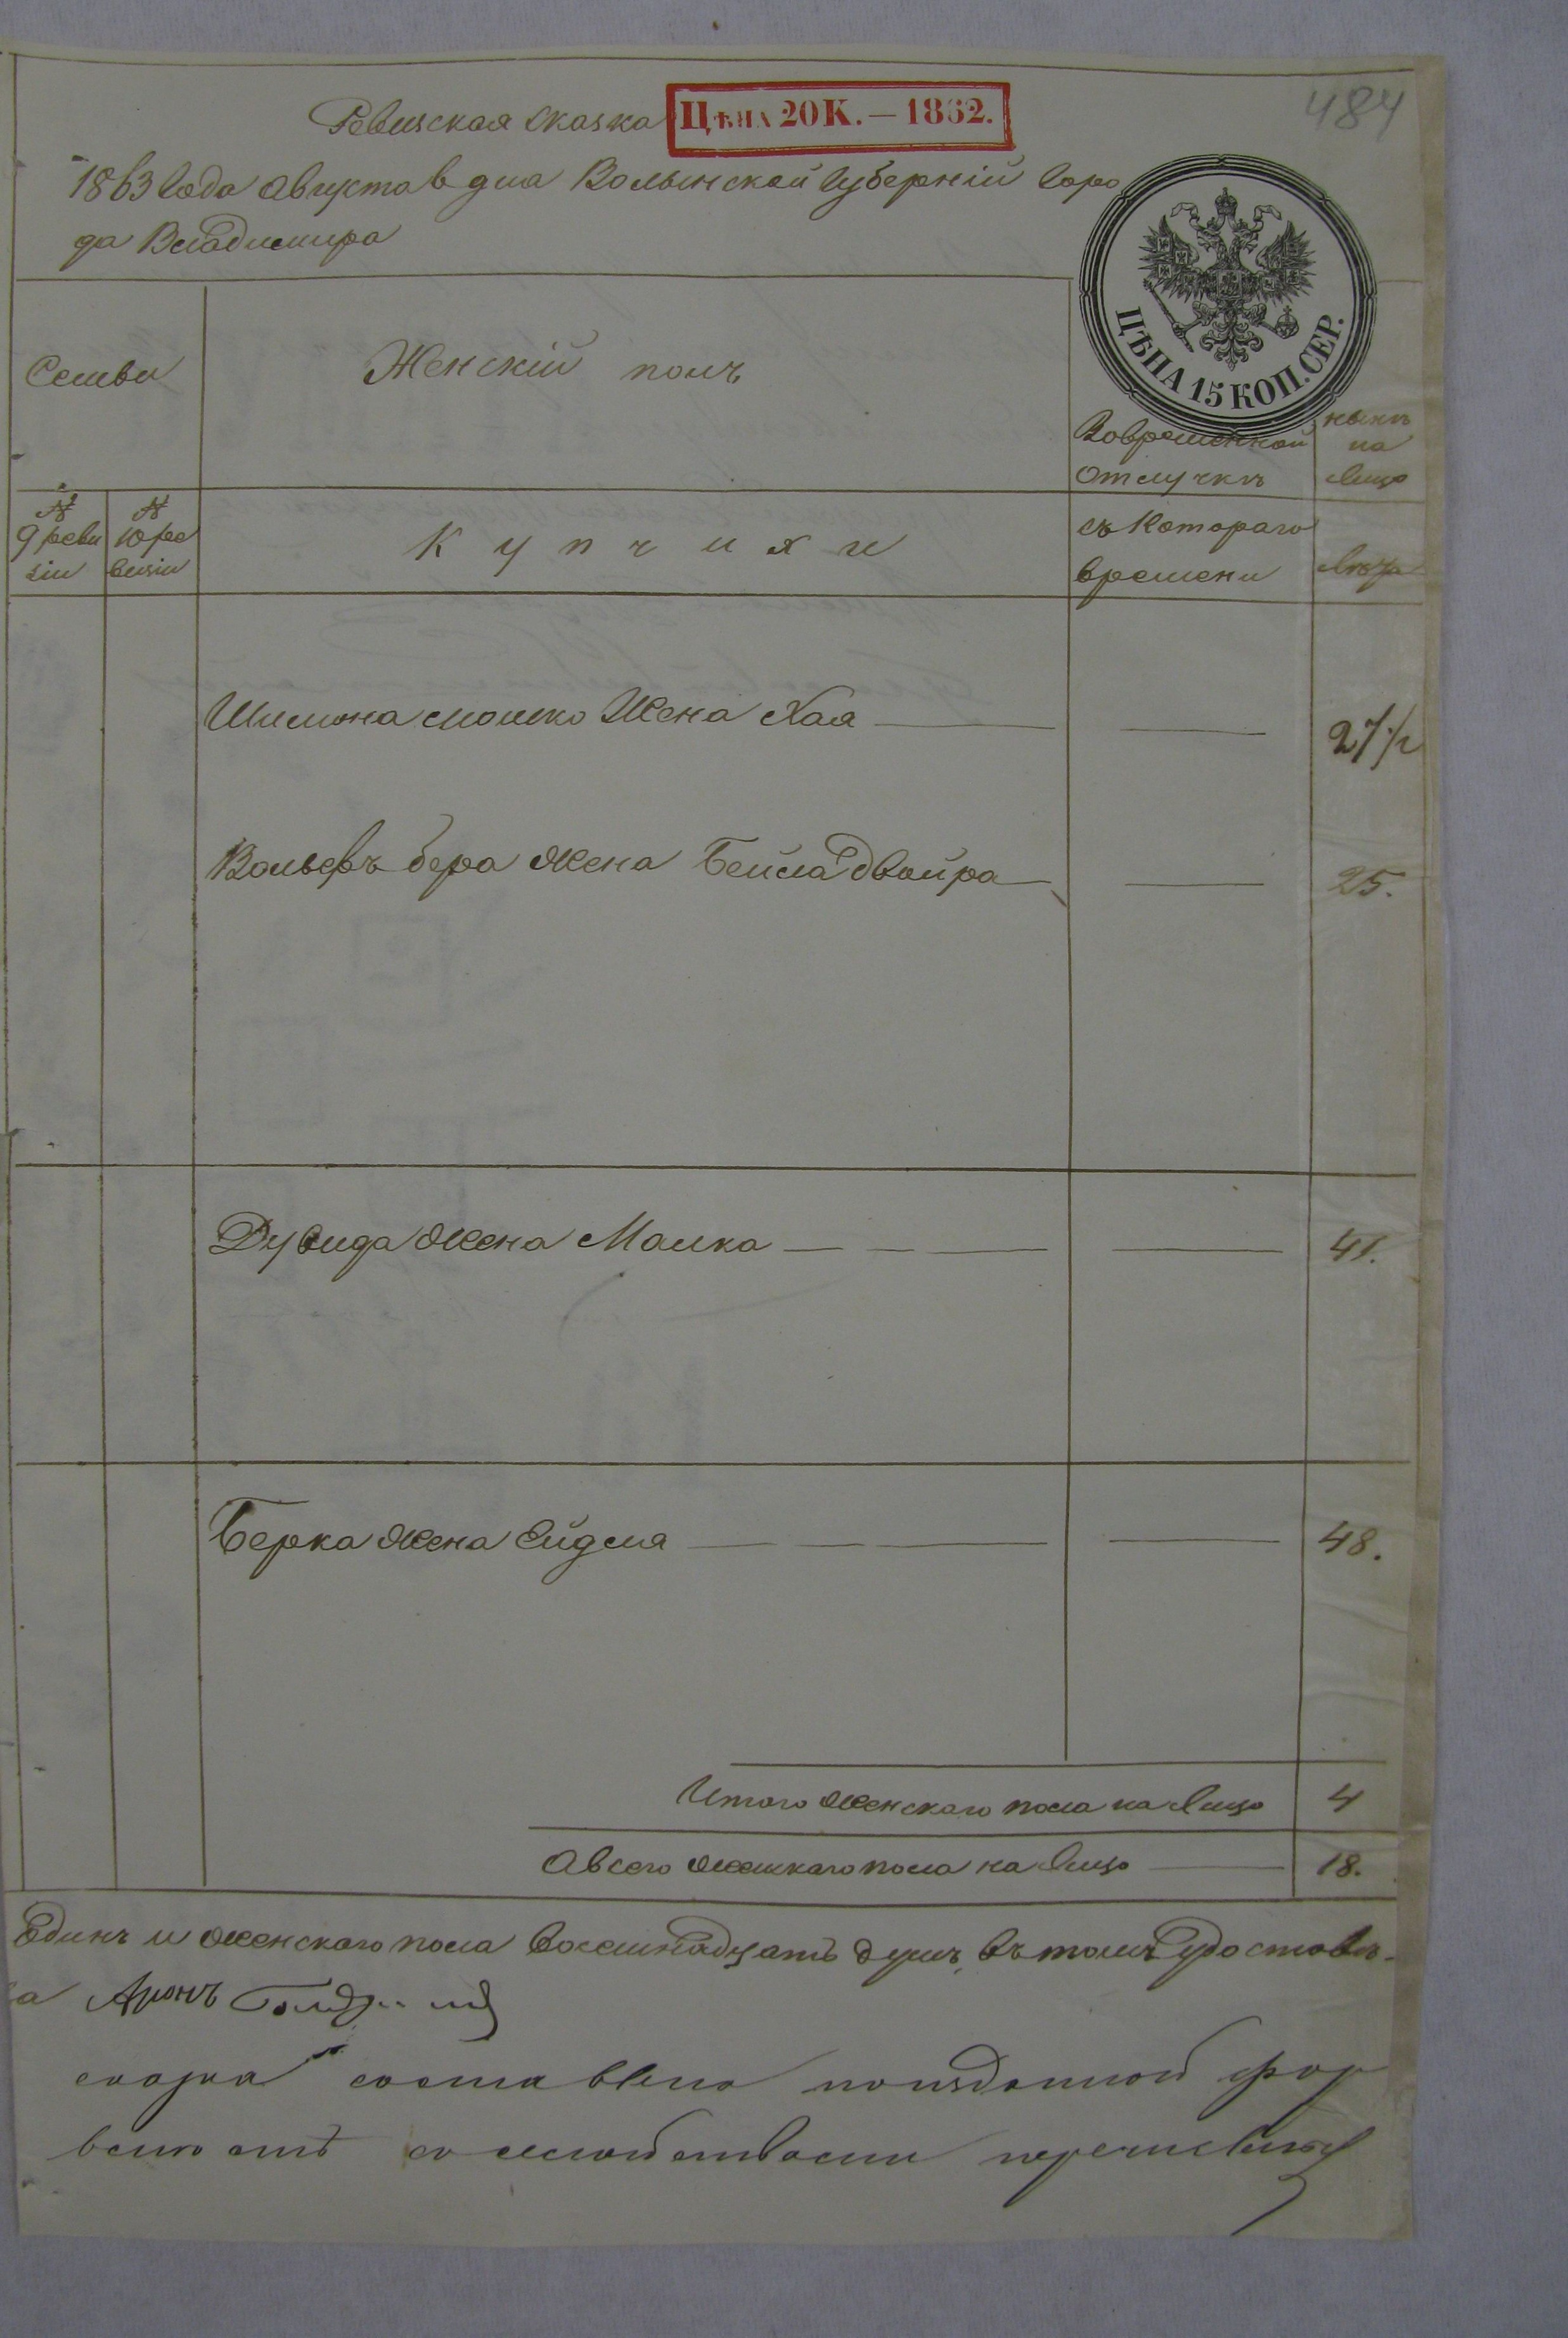 484
Ревизская сказка ЦѢНА 20 К. — 1862.
1863 года августа в дня Волынской губерній горо
да Владимира
ЦѢНА 15 КОП. СЕР.
Семьи
Женскій полъ
Вовременной отлучкѣ
ныне на лицо
№ 9 ревизіи
№ 10 ревизіи
Купчихи
съ котораго времени
лѣта
Шимона мошко жена Хая — — 27 1/2
Вольфъ бера жена Бейла двойра — — 25.
Дувида жена Малка — — — — 41.
Берка жена Ейдля — — — — 48.
Итого женскаго пола на лицо 4
А всего женскаго пола на лицо — 18.
Одинъ и женскаго пола восемнадцать душъ, въ томъ удостовѣ-
а Аронъ
сказка составлена по изданной фор